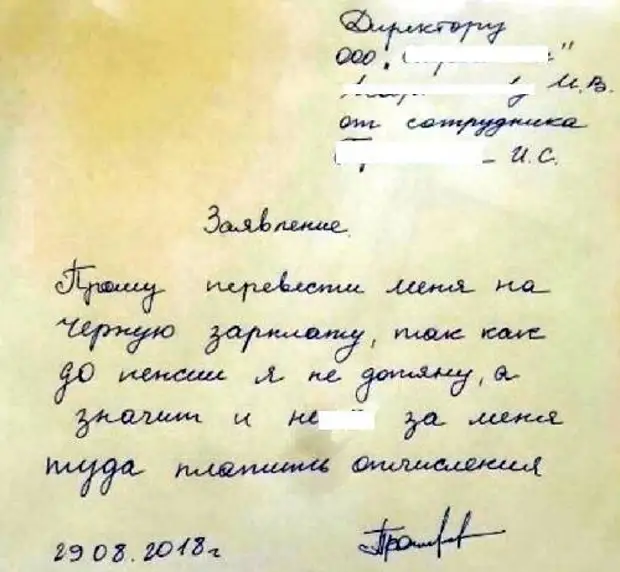 Директору
ООО "
И.В.
от сотрудника
И.С.
Заявление.
Прошу перевести меня на
черную зарплату, так как
до пенсии я не дотяну, а
значит и не за меня
туда платить отчисления
29.08.2018г